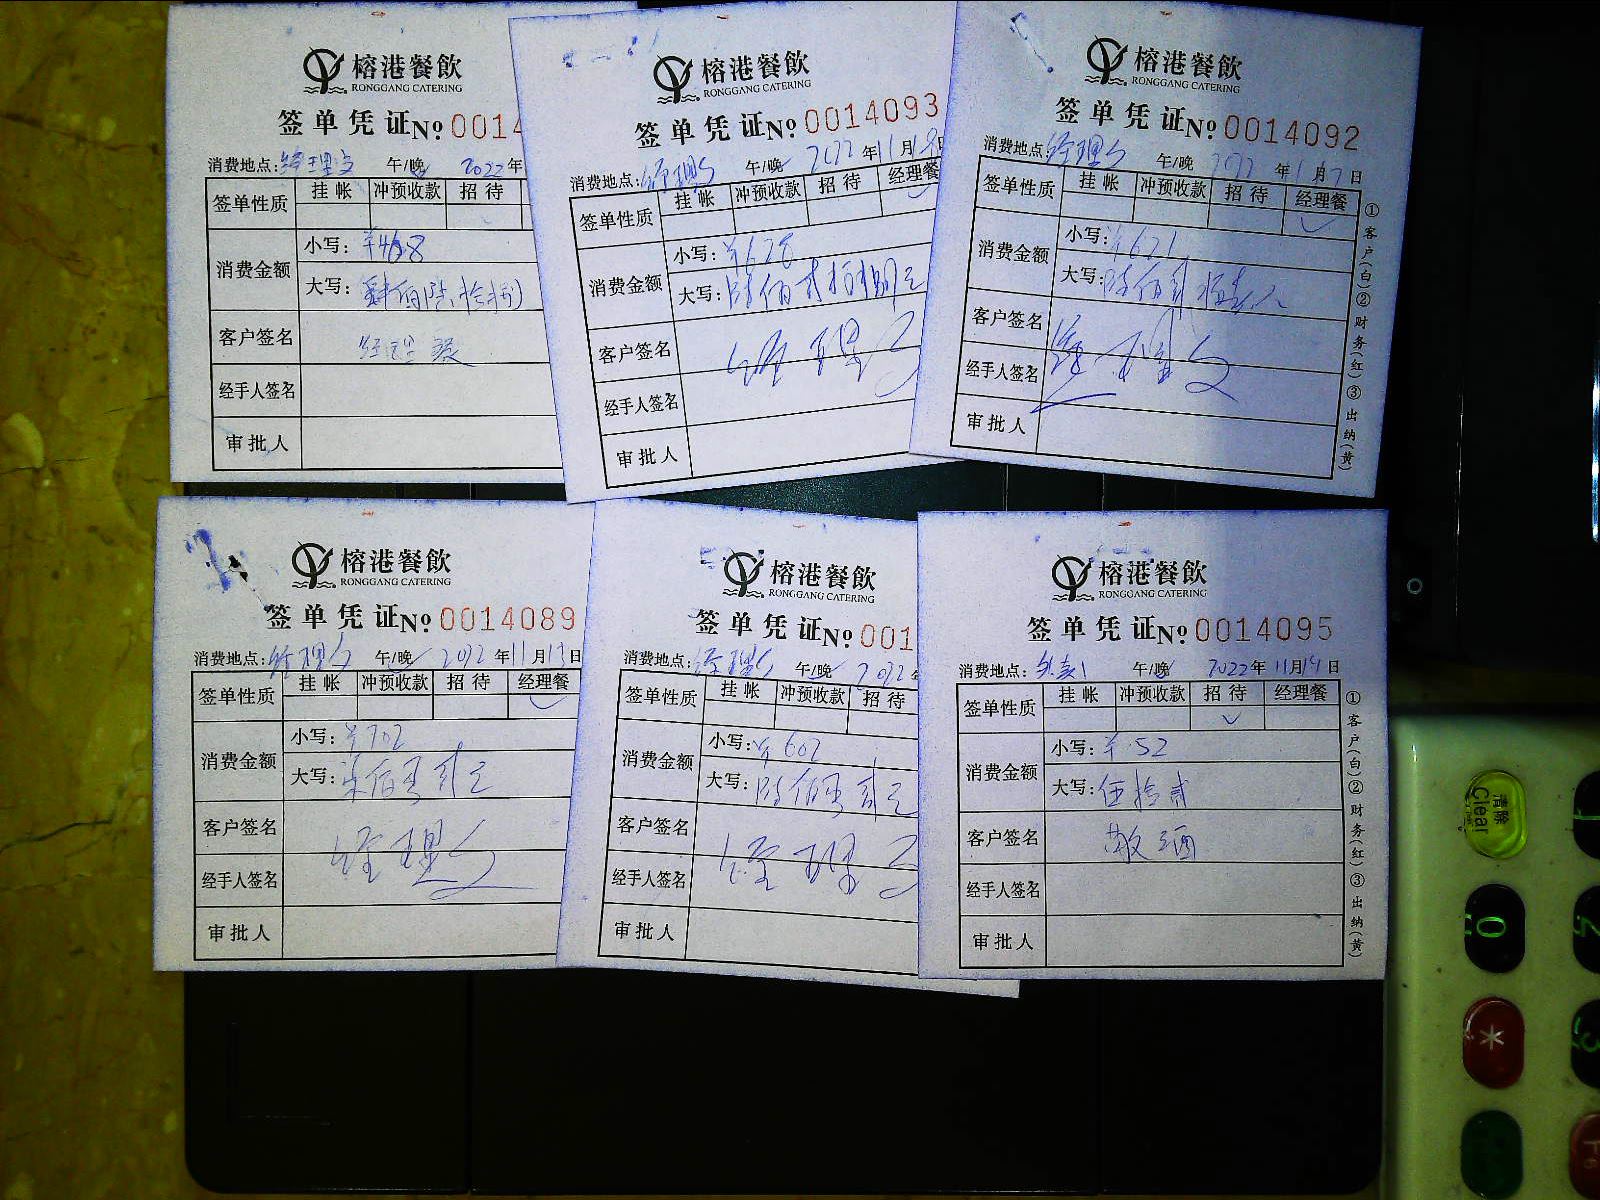 榕港餐飲
RONGGANG CATERING
签单凭证 No 0014
消费地点: 午/晚 2022年
签单性质 挂帐 冲预收款 招待
消费金额 小写: ¥468
大写:
客户签名
经手人签名
审批人
榕港餐飲
RONGGANG CATERING
签单凭证 No 0014093
消费地点: 经理 午/晚 2022年11月18日
签单性质 挂帐 冲预收款 招待 经理餐
消费金额 小写: ¥628
大写: 陆佰贰拾捌元
客户签名 经理
经手人签名
审批人
榕港餐飲
RONGGANG CATERING
签单凭证 No 0014092
消费地点: 经理 午/晚 年 月7日
签单性质 挂帐 冲预收款 招待 经理餐
消费金额 小写: ¥621
大写: 陆佰贰拾壹元
客户签名 经理
经手人签名
审批人
①客户(白)②财务(红)③出纳(黄)
榕港餐飲
RONGGANG CATERING
签单凭证 No 0014089
消费地点: 经理 午/晚 2022年11月13日
签单性质 挂帐 冲预收款 招待 经理餐
消费金额 小写: ¥702
大写: 柒佰零贰元
客户签名 经理
经手人签名
审批人
榕港餐飲
RONGGANG CATERING
签单凭证 No 001
消费地点: 经理 午/晚 2022
签单性质 挂帐 冲预收款 招待
消费金额 小写: ¥602
大写: 陆佰零贰元
客户签名 经理
经手人签名
审批人
榕港餐飲
RONGGANG CATERING
签单凭证 No 0014095
消费地点: 午/晚 2022年11月19日
签单性质 挂帐 冲预收款 招待 经理餐
消费金额 小写: ¥52
大写: 伍拾贰
客户签名 敬酒
经手人签名
审批人
①客户(白)②财务(红)③出纳(黄)
清除
Clear
0
*